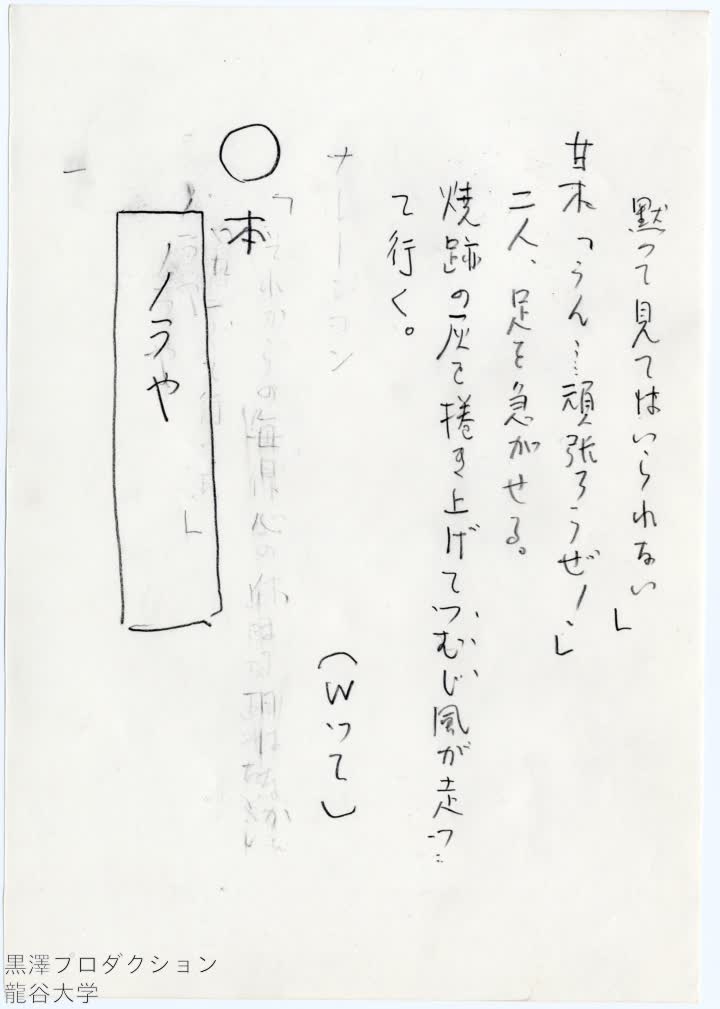 黙って見てはいられない」
甘木「うん……頑張ろうぜ！」
二人、足を急がせる。
焼跡の灰を捲き上げてつむじ風が走っ
て行く。
（Wって）
ナレーション
「それからの
○本
ノラや
黒澤プロダクション
龍谷大学